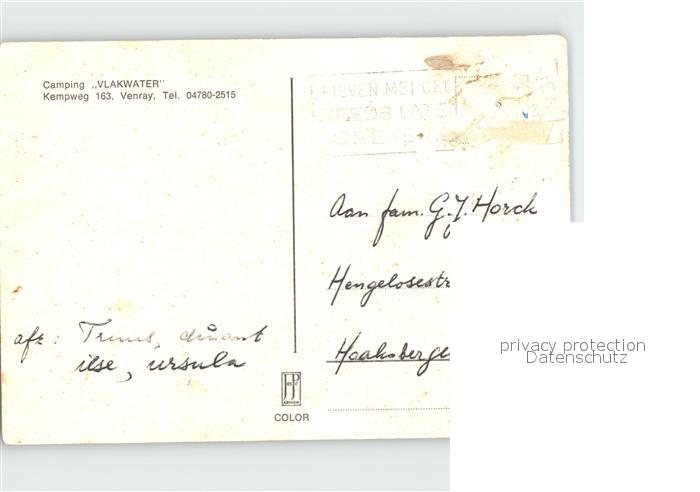 Camping „VLAKWATER"
Kempweg 163, Venray, Tel. 04780-2515
BRIEVEN MET GEL
STEEDS LATE
Aan fam. G.J. Horck
Hengelosestr
Haaksberge
afz: Truus,
ilse, ursula
COLOR
privacy protection
Datenschutz